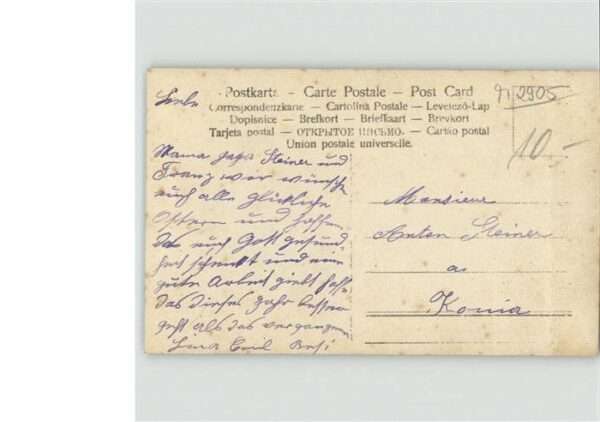 Postkarte — Carte Postale — Post Card
Correspondenzkarte — Cartolina Postale — Levelező-Lap
Dopisnice — Brefkort — Briefkaart — Brevkort
Tarjeta postal — ОТКРЫТОЕ ПИСЬМО. — Cartão postal
Union postale universelle.
91 2905
10.-
Liebe
Mama Steiner und
Franz wir wünsch
euch alle glückliche
Ostern und hoffen
das euch Gott gesund
heit schenkt und eine
gute Arbeit giebt
das dieses Jahr besser
geht als das vergangen
Emil Resi
Monsieur
Anton Steiner
a
Konia